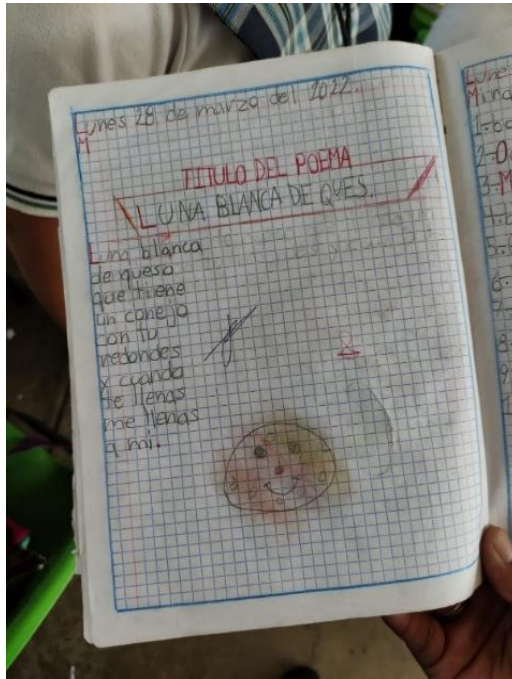 Lunes 28 de marzo del 2022.
M
TITULO DEL POEMA
LUNA BLANCA DE QUES.
Luna blanca
de queso
que tiene
un conejo
con tu
redondes
y cuando
te llenas
me llenas
a mi.
Lune
1=
2=
3=M
4=
5=
6=